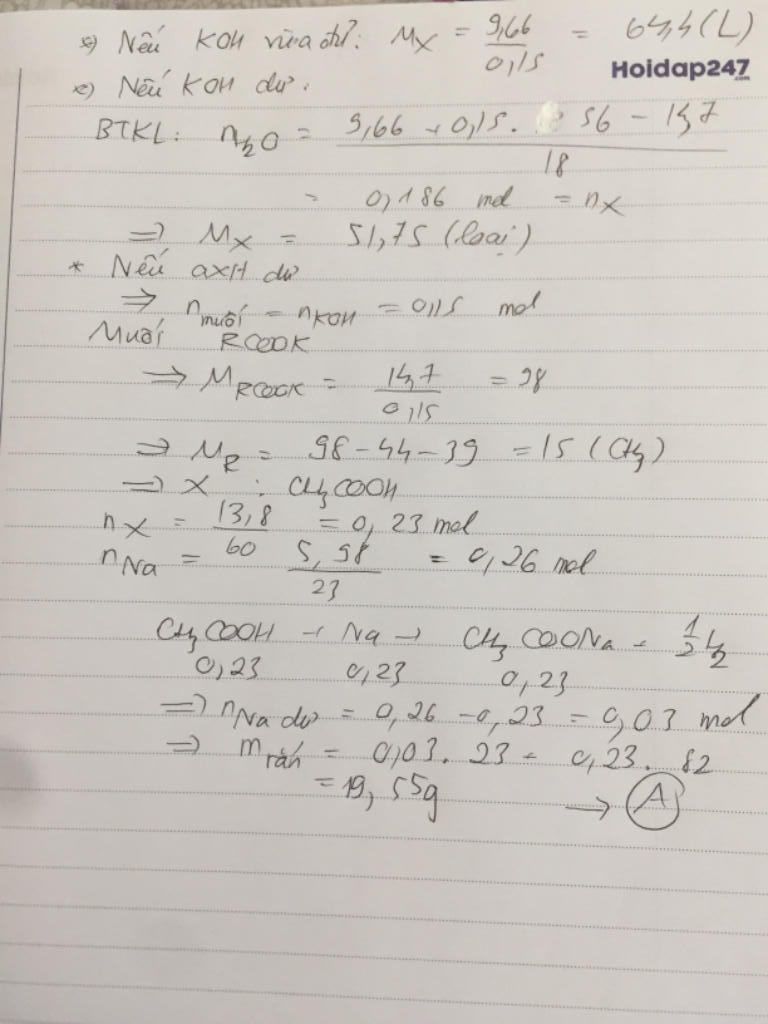 *) Nếu KOH vừa đủ: M_X = 9,66/0,15 = 64,4 (L)
Hoidap247.com
*) Nếu KOH dư:
BTKL: n_H2O = (9,66 + 0,15. 56 - 14,7)/18
= 0,186 mol = n_X
=> M_X = 51,75 (loại)
* Nếu axit dư
=> n_muối = n_KOH = 0,15 mol
Muối RCOOK
=> M_RCOOK = 14,7/0,15 = 98
=> M_R = 98-44-39 = 15 (CH3)
=> X : CH3COOH
n_X = 13,8/60 = 0,23 mol
n_Na = 5,98/23 = 0,26 mol
CH3COOH + Na -> CH3COONa + 1/2 H2
0,23 0,23 0,23
=> n_Na dư = 0,26 - 0,23 = 0,03 mol
=> m_rắn = 0,03. 23 + 0,23. 82
= 19,55g -> A